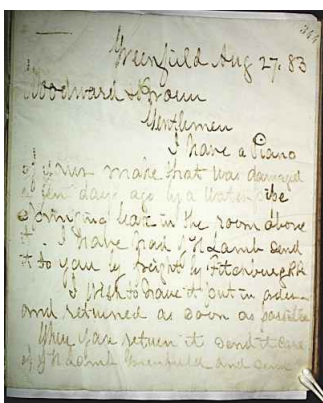 Greenfield Aug 27. 83
Woodward & Brown
Gentlemen
I have a Piano
of your make that was damaged
a few days ago by a water pipe
springing leak in the room above
it. I have had J H Lamb send
it to you by freight by Fitchburg RR
I wish to have it put in order
and returned as soon as possible
When you return it send it care
of J H Lamb Greenfield and send